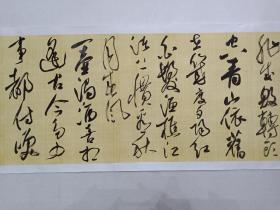 非成敗轉頭
空青山依舊
在幾度夕陽紅
白髮漁樵江
渚上慣看秋
月春風
一壺濁酒喜相
逢古今多少
事都付笑